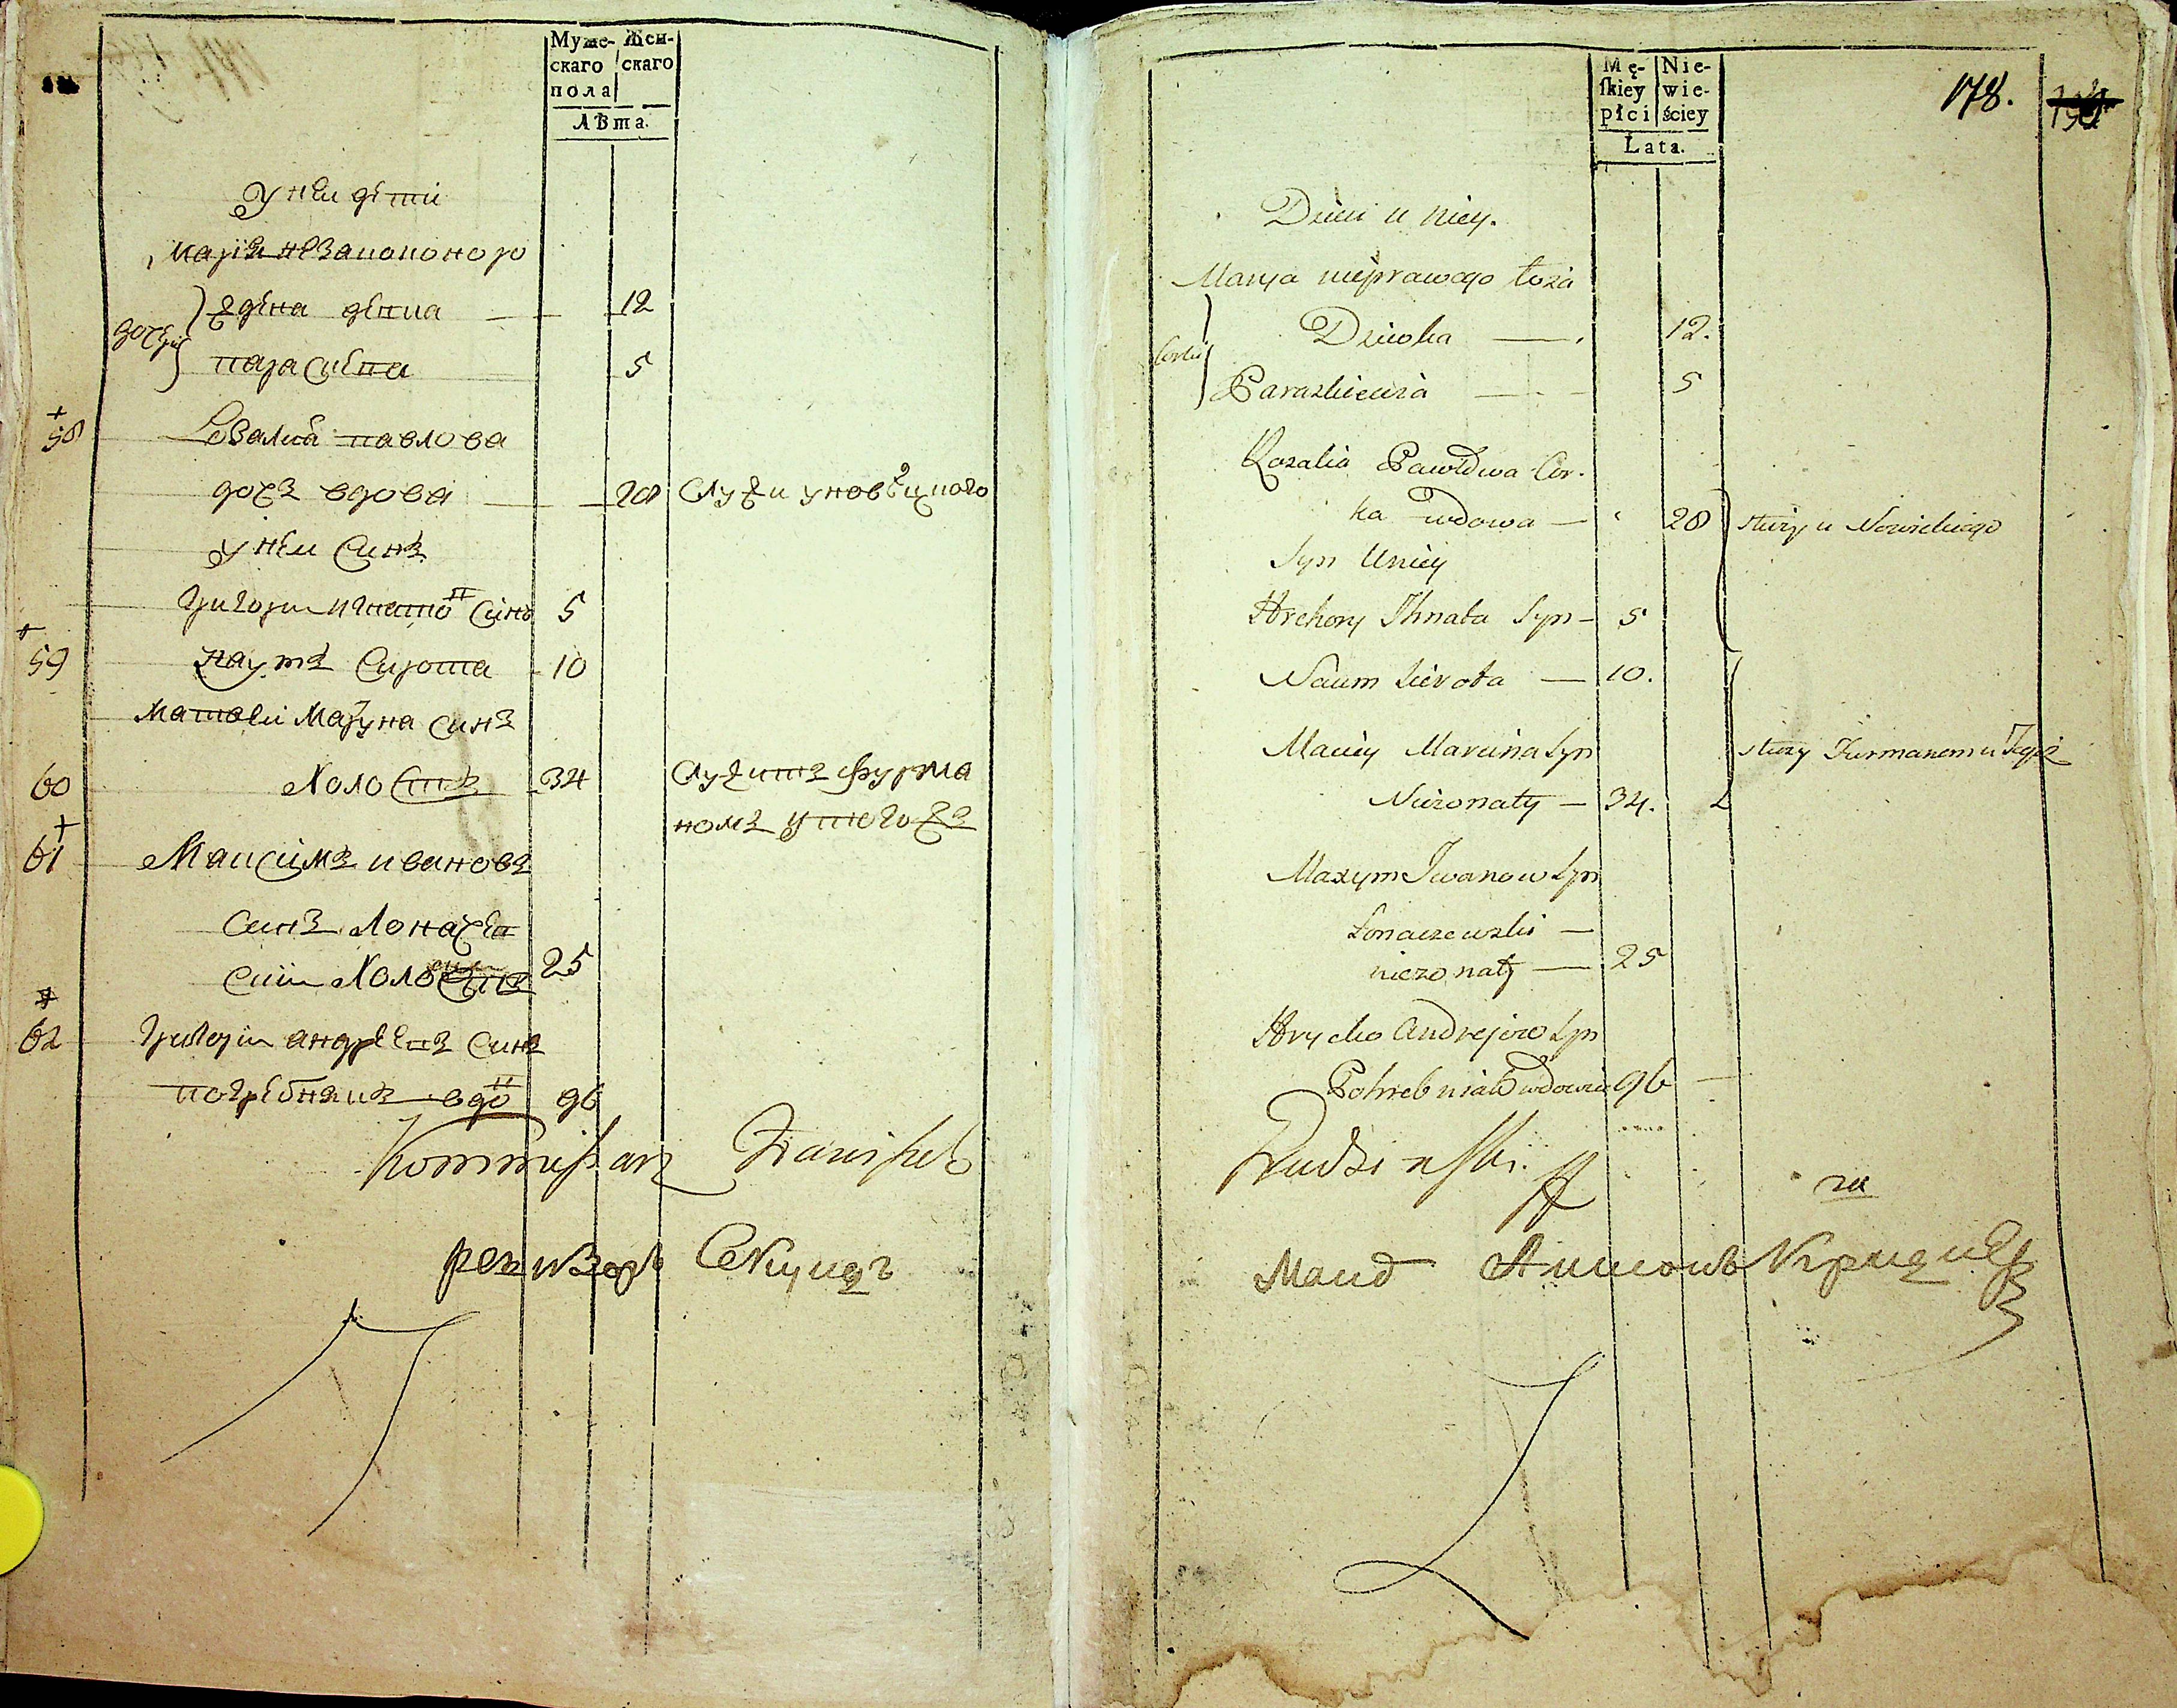 Муже- Жен-
скаго скаго
пола
Лѣта.
У неи дѣти
Марія незаконого
дочери
едѣна дѣвка 12
параскева 5
58 Розалия павлова
дочъ вдова 28 служи у новѣцкого
У неи синъ
Григори игнатов синъ 5
59 Наумъ сирота 10
Матвеи Марцина синъ
60 Холостъ 34 Служитъ фурма
номъ у тогожъ
61 Максимъ ивановъ
синъ Лоначе
скии Холостъ 25
62 Григории андреевъ синъ
погребнякъ вдо 96
Kommissarz Franiszek
ревизоръ
178.
Mę- Nie-
skiey wie-
płci ściey
Lata.
Dzieci u niey.
Marya nieprawego łoża
Corki
Dziewka 12.
Paraskiewia 5
Rozalia Pawłowa Cor-
ka wdowa 28 służy u Nowickiego
Syn u niey
Hrehory Ihnata Syn 5
Naum Sierota 10.
Maciey Marcina Syn służy Furmanem u Tegoż
Nieżonaty 34.
Maxym Iwanow Syn
Łonaczewski
nieżonaty 25
Hryćko Andrejów Syn
Pohrebniak wdowiec 96
Rudzinski